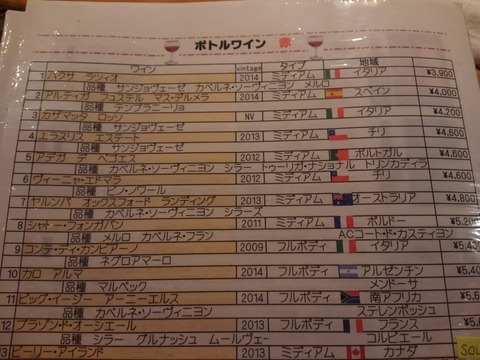 ボトルワイン 赤
ワイン vintage タイプ 地域
1 ハクサ ラツィオ 2014 ミディアム イタリア ¥3,900
品種 サンジョヴェーゼ カベルネ・ソーヴィニヨン メルロ
2 アルティガ コステル マス・デルメラ 2014 ミディアム スペイン ¥4,000
品種 テンプラニーリョ
3 カサマッタ ロッソ NV ミディアム イタリア ¥4,200
品種 サンジョヴェーゼ
4 エラスリス エステート 2013 ミディアム チリ ¥4,600
品種 サンジョヴェーゼ
5 アデガ デ ペゴエス 2012 ミディアム ポルトガル ¥4,600
品種 カベルネ・ソーヴィニヨン シラー トゥーリガ・ナショナル トリンカディラ
6 ヴィーニャ・エドマラ 2012 ミディアム チリ ¥4,600
品種 ピノ・ノワール
7 ヤルンバ オックスフォード ランディング 2013 ミディアム オーストラリア ¥4,800
品種 カベルネ・ソーヴィニヨン シラーズ
8 シャトー・フォンガバン 2011 ミディアム ボルドー ¥5,20
品種 メルロ カベルネ・フラン ACコート・ド・カスティヨン
9 コンテ・ディ・カンピアーノ 2009 フルボディ イタリア ¥5,40
品種 ネグロアマーロ
10 カロ アルマ 2014 フルボディ アルゼンチン ¥5,40
品種 マルベック メンドーサ
11 ビッグ・イージー アーニーエルス 2014 フルボディ 南アフリカ
品種 カベルネ・ソーヴィニヨン ステレンボッシュ
12 ブラゾン・ド・オーシエール 2013 フルボディ フランス
品種 シラー グルナッシュ ムールヴェー コルビエール
13 ピーリー・アイランド 2013 ミディアム カナダ SOL